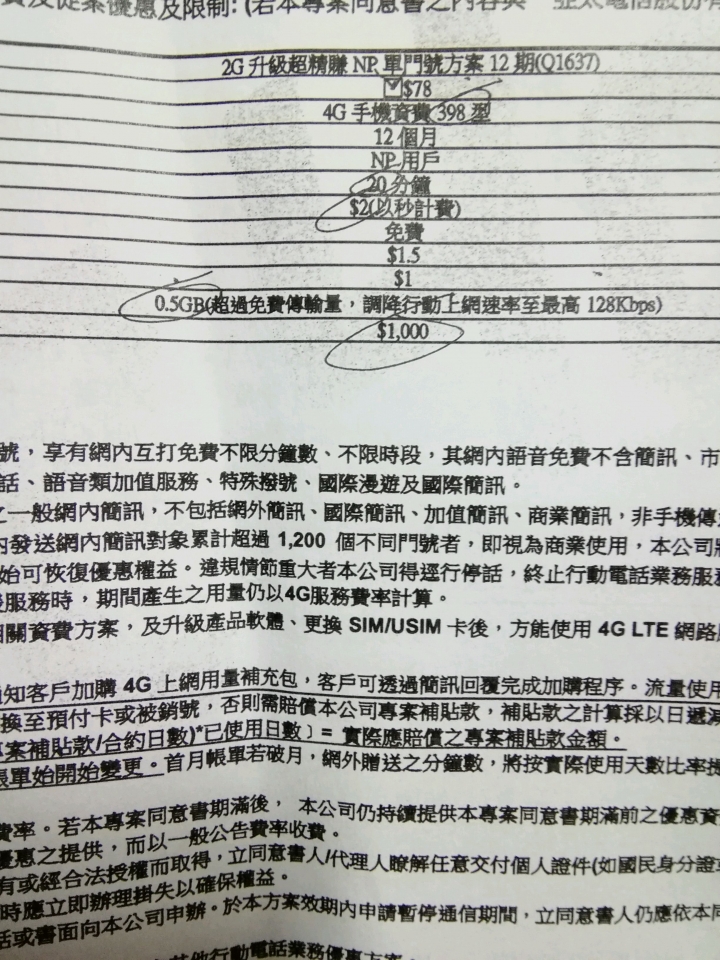 費及促案優惠及限制: (若本專案同意書之內容與 亞太電信股份有
2G 升級超精賺 NP 單門號方案 12 期(Q1637)
$78
4G 手機資費 398 型
12 個月
NP 用戶
20 分鐘
$2(以秒計費)
免費
$1.5
$1
0.5GB(超過免費傳輸量，調降行動上網速率至最高 128Kbps)
$1,000
號，享有網內互打免費不限分鐘數、不限時段，其網內語音免費不含簡訊、市
話、語音類加值服務、特殊撥號、國際漫遊及國際簡訊。
之一般網內簡訊，不包括網外簡訊、國際簡訊、加值簡訊、商業簡訊，非手機傳
內發送網內簡訊對象累計超過 1,200 個不同門號者，即視為商業使用，本公司
始可恢復優惠權益。違規情節重大者本公司得逕行停話，終止行動電話業務服務
服務時，期間產生之用量仍以4G服務費率計算。
相關資費方案，及升級產品軟體、更換 SIM/USIM 卡後，方能使用 4G LTE 網路
通知客戶加購 4G 上網用量補充包，客戶可透過簡訊回覆完成加購程序。流量使用
換至預付卡或被銷號，否則需賠償本公司專案補貼款，補貼款之計算採以日遞減
專案補貼款/合約日數)*已使用日數〕= 實際應賠償之專案補貼款金額。
帳單始開始變更。首月帳單若破月，網外贈送之分鐘數，將按實際使用天數比率提
費率。若本專案同意書期滿後， 本公司仍持續提供本專案同意書期滿前之優惠資
優惠之提供，而以一般公告費率收費。
有或經合法授權而取得，立同意書人/代理人瞭解任意交付個人證件(如國民身分證
時應立即辦理掛失以確保權益。
話或書面向本公司申辦。於本方案效期內申請暫停通信期間，立同意書人仍應依本同
其他行動電話業務優惠方案